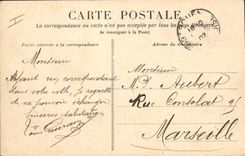 CARTE POSTALE
La correspondance au recto n'est pas acceptée par tous les pays étrangers
(Se renseigner à la Poste)
Partie réservée à la correspondance
du destinataire
Monsieur
Ayant un correspondant
dans votre ville, je regrette
de ne pouvoir échanger
sincères salutations
Monsieur
M. P. Aubert
Rue Consolat
Marseille